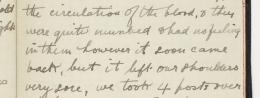 the circulation of the blood, & they
were quite numbed & had no feeling
in them however it soon came
back, but it left our shoulders
very sore, we took 4 posts over